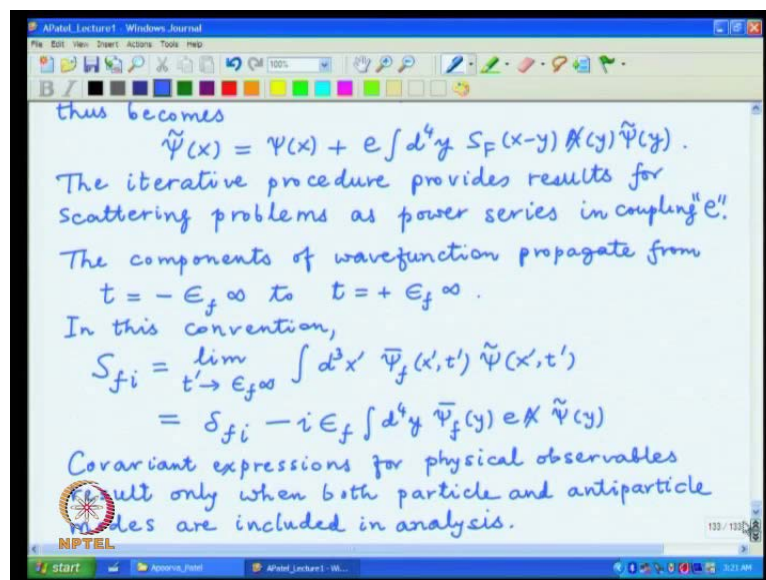 APatel_Lecture1 - Windows Journal
File Edit View Insert Actions Tools Help
100%
B I
thus becomes
Ψ̃(x) = Ψ(x) + e ∫ d⁴y S_F(x-y) A̸(y) Ψ̃(y).
The iterative procedure provides results for
scattering problems as power series in coupling "e".
The components of wavefunction propagate from
t = - ϵ_f ∞ to t = + ϵ_f ∞.
In this convention,
S_fi = lim_{t'→ ϵ_f ∞} ∫ d³x' Ψ̄_f(x',t') Ψ̃(x',t')
= δ_fi - i ϵ_f ∫ d⁴y Ψ̄_f(y) e A̸ Ψ̃(y)
Covariant expressions for physical observables
result only when both particle and antiparticle
modes are included in analysis.
133 / 133
NPTEL
start Apoorva_Patel APatel_Lecture1 - Wi... 3:21 AM